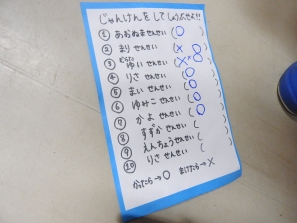 じゃんけんをしてしょうぶせよ!!
① あおぬませんせい (○)
② まりせんせい (×○)
③ ゆいせんせい (××○)
④ りさせんせい (○)
⑤ まいせんせい (○)
⑥ ゆみこせんせい (○)
⑦ かよせんせい (○)
⑧ すずかせんせい ( )
⑨ えんちょうせんせい ( )
⑩ りさせんせい ( )
かったら→○ まけたら→×